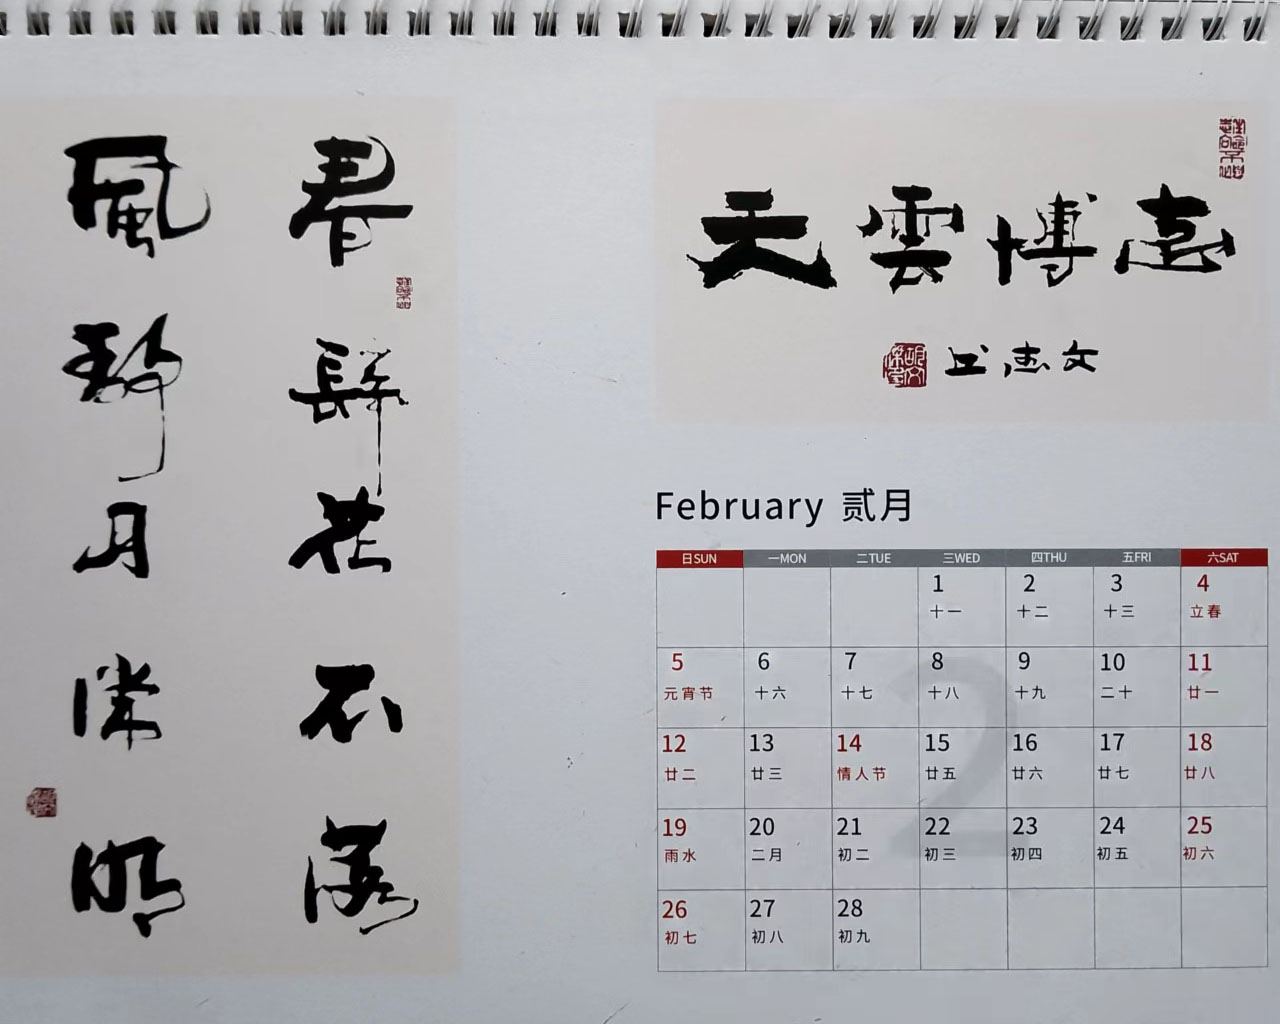 春肆花不落
風静月深明
志博雲天
文志书
February 贰月
日SUN 一MON 二TUE 三WED 四THU 五FRI 六SAT
1 2 3 4
十一 十二 十三 立春
5 6 7 8 9 10 11
元宵节 十六 十七 十八 十九 二十 廿一
2
12 13 14 15 16 17 18
廿二 廿三 情人节 廿五 廿六 廿七 廿八
19 20 21 22 23 24 25
雨水 二月 初二 初三 初四 初五 初六
26 27 28
初七 初八 初九